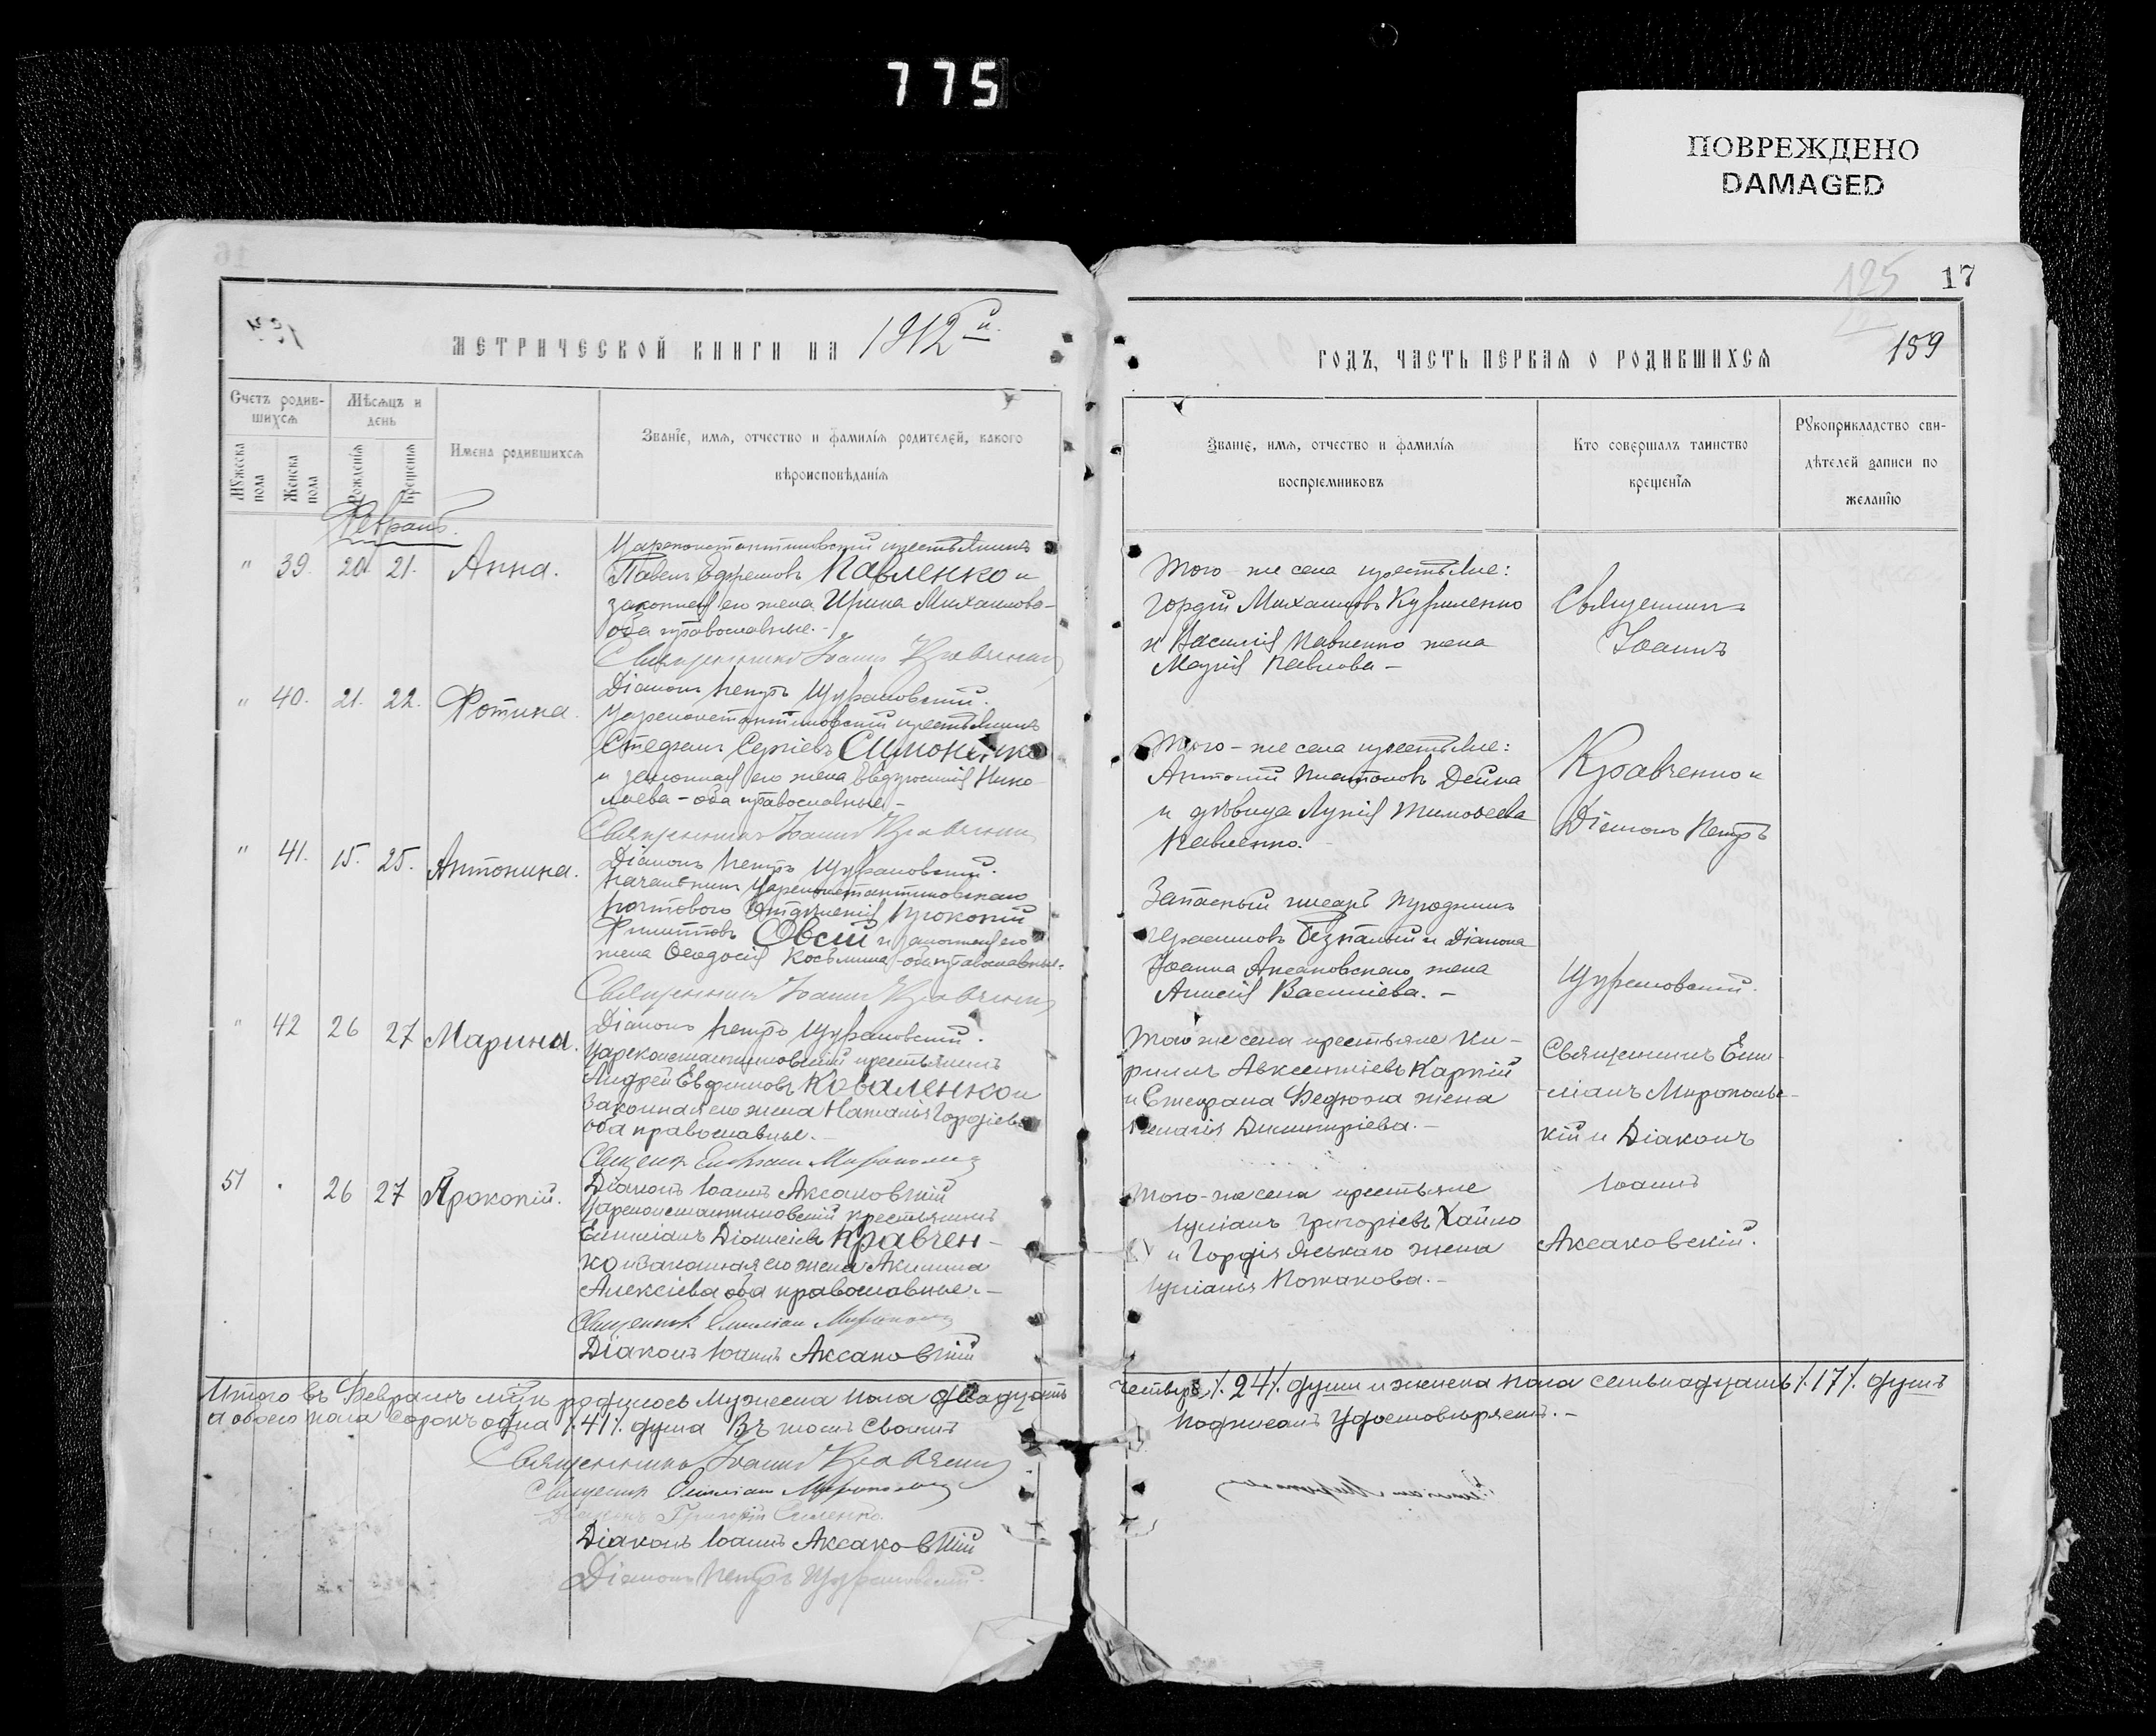 775
ПОВРЕЖДЕНО
DAMAGED
16
125
17
МЕТРИЧЕСКОЙ КНИГИ НА 1912 й.
ГОДЪ, ЧАСТЬ ПЕРВАЯ О РОДИВШИХСЯ
159
Счетъ родив-
шихся
Мужеска пола
Женска пола
Мѣсяцъ и
день
Рожденія
Крещенія
Имена родившихся
Званіе, имя, отчество и фамилія родителей, какого
вѣроисповѣданія
Званіе, имя, отчество и фамилія
воспріемниковъ
Кто совершалъ таинство
крещенія
Рукоприкладство сви-
дѣтелей записи по
желанію
Февраль.
" 39. 20. 21. Анна.
Цареконстантиновскій крестьянинъ
Павелъ Ефремовъ Павленко и
законная его жена Ирина Михаилова-
оба православные.-
Священникъ Іоаннъ Кравченко
Діаконъ Петръ Щурановскій.
Того-же села крестьяне:
Гордій Михаиловъ Куриленко
и Василія Павленко жена
Марія Павлова-
Священникъ
Іоаннъ
" 40. 21. 22. Фотина.
Цареконстантиновскій крестьянинъ
Стефанъ Сергіевъ Симоненко
и законная его жена Евдокія Нико-
лаева-оба православные-
Священникъ Іоаннъ Кравченко
Діаконъ Петръ Щурановскій.
Того-же села крестьяне:
Антоній Платоновъ Дейна
и дѣвица Лукія Тимоѳеева
Павленко.
Кравченко и
Діаконъ Петръ
" 41. 15. 25. Антонина.
Начальникъ Цареконстантиновскаго
почтового Отдѣленія Прокопій
Филипповъ Овсій и законная его
жена Ѳеодосія Косьмина-оба православные-
Священникъ Іоаннъ Кравченко
Діаконъ Петръ Щурановскій.
Запасный писарь
Герасимовъ и Діакона
Іоанна Аксаковскаго жена
Васильева.-
Щурановскій.
" 42 26 27 Марина.
Цареконстантиновскій крестьянинъ
Андрей Евфимовъ Коваленко и
законная его жена Наталія Гордіева
оба православные.-
Священ. Емиліанъ Миропольскій
Діаконъ Іоаннъ Аксаковскій
Того же села крестьяне Ки-
риллъ Авксентіевъ Карпій
и Стефана Федюха жена
Пелагія Димитріева.-
Священникъ Еми-
-ліанъ Миропольс-
кій и Діаконъ
Іоаннъ
Аксаковскій.
51 . 26 27 Прокопій.
Цареконстантиновскій крестьянинъ
Емиліанъ Діонисіевъ Кравчен-
ко и законная его жена Акилина
Алексіева оба православные.-
Священникъ Емиліан Миропольскій
Діаконъ Іоаннъ Аксаковскій
Того-же села крестьяне
Іуліанъ Григоріевъ Хайло
и Гордія Яськаго жена
Іуліанія
Итого въ Февралѣ м-цѣ родилось Мужеска пола двадцать
четыре ⁒24⁒ души и женска пола семьнадцать ⁒17⁒ душъ
а обоего пола сорокъ одна ⁒41⁒ душа Въ томъ своимъ
подписомъ Удостовѣряемъ.-
Священникъ Іоаннъ Кравченко
Священ. Емиліан Миропольскій
Діаконъ Іоаннъ Аксаковскій
Діаконъ Петръ Щурановскій.